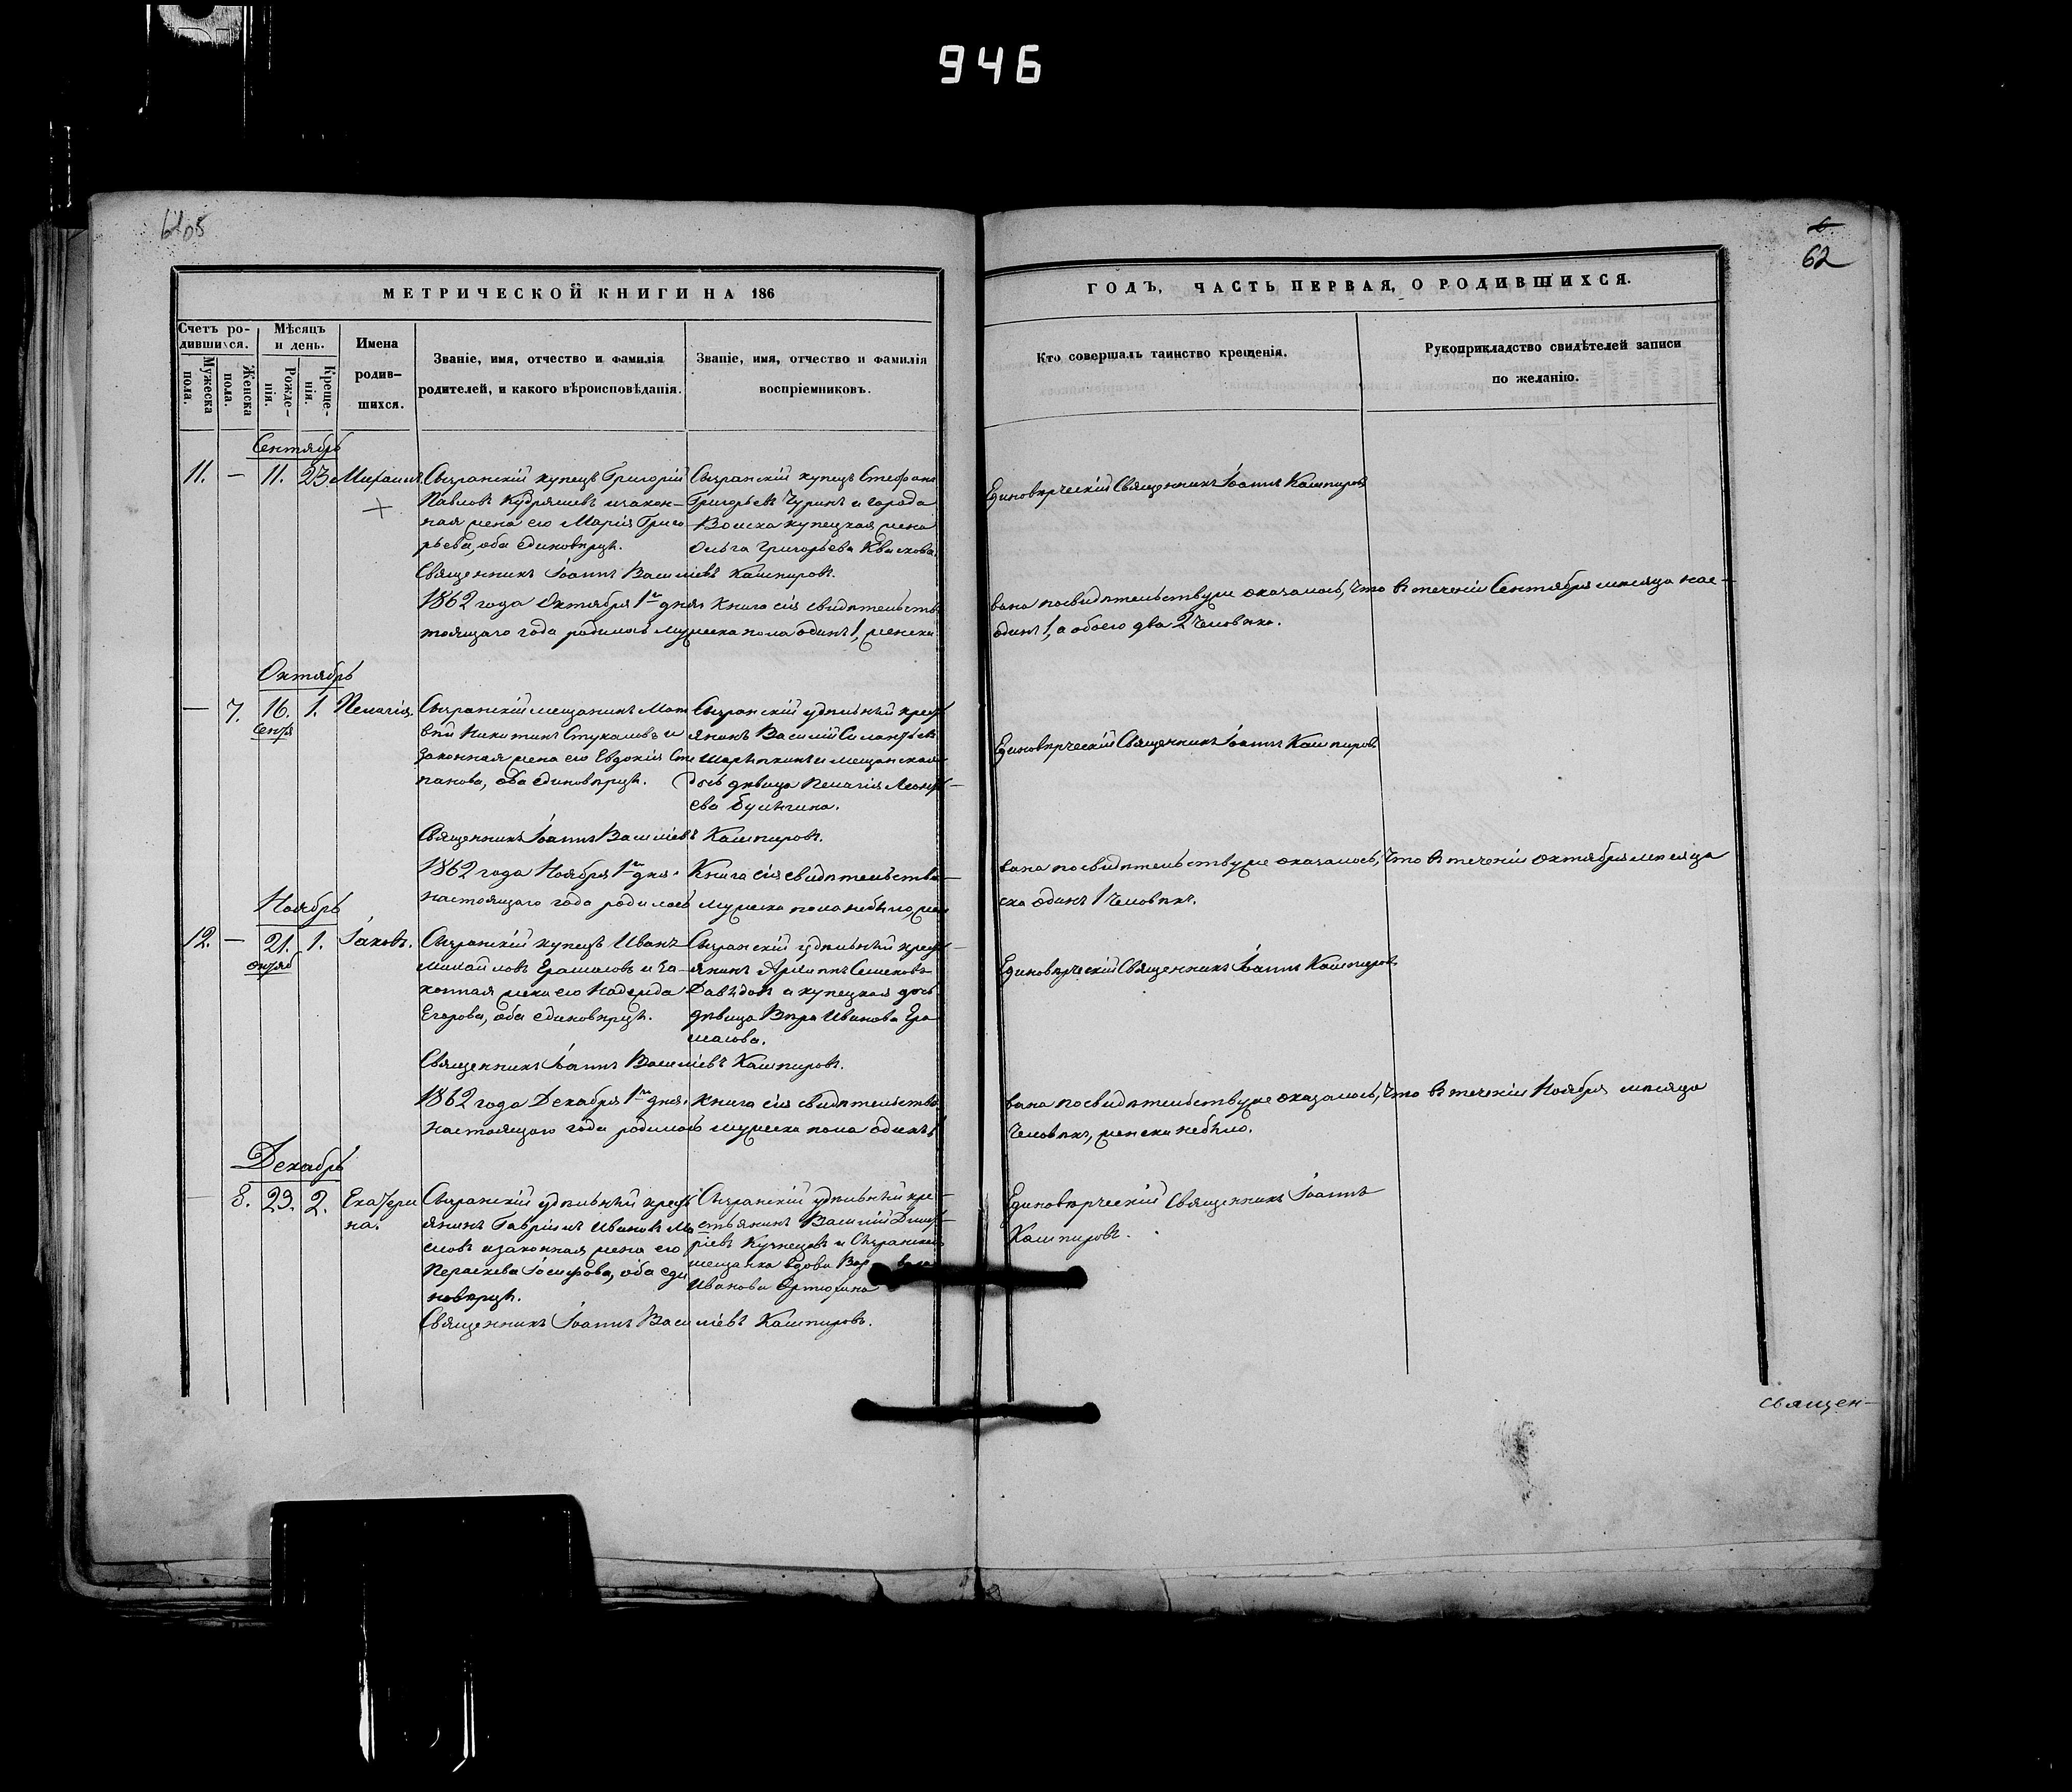 946
6105
62
МЕТРИЧЕСКОЙ КНИГИ НА 186
ГОДЪ, ЧАСТЬ ПЕРВАЯ, О РОДИВШИХСЯ.
Счетъ ро-
дившихся.
Мужеска
пола.
Женска
пола.
Мѣсяцъ
и день.
Рожде-
нія.
Креще-
нія.
Имена
родив-
шихся.
Званіе, имя, отчество и фамилія
родителей, и какого вѣроисповѣданія.
Званіе, имя, отчество и фамилія
воспріемниковъ.
Кто совершалъ таинство крещенія.
Рукоприкладство свидѣтелей записи
по желанію.
Сентябрь
11. — 11. 23. Михаилъ.
Сызранскій купецъ Григорій
Павловъ Кудряшевъ и закон-
ная жена его Марія Григо
рьева, оба единовѣрцы.
Сызранскій купецъ Стефанъ
Григорьевъ Чуринъ и города
Вольска купецкая жена
Ольга Григорьева Кваскова.
Единовѣрческій Священникъ Іоаннъ Кашпировъ
Священникъ Іоаннъ Василіевъ Кашпировъ.
1862 года Октября 1го дня книга сія свидѣтельство
вана по свидѣтельству же оказалось, что въ теченіи Сентября мѣсяца нас-
тоящаго года родилось мужеска пола одинъ 1, женска
одинъ 1, а обоего два 2 человѣка.
Октябрь
— 7. 16. 1. Пелагія.
Сентя
Сызранскій мещанинъ Мат
вѣй Никитинъ Стукаловъ и
законная жена его Евдокія Сте
панова, оба единовѣрцы.
Сызранскій удѣльный крест
янинъ Василій Силантьевъ
и мещанская
дочь дѣвица Пелагія Леонть-
ева Булыгина.
Единовѣрческій Священникъ Іоаннъ Кашпировъ
Священникъ Іоаннъ Василіевъ Кашпировъ.
1862 года Ноября 1го дня. Книга сія свидѣтельство-
вана по свидѣтельству же оказалось, что въ теченіи октября мѣсяца
настоящаго года родилось мужеска пола небыло, жен
ска одинъ 1 человѣкъ.
Ноябрь
12. — 21. 1. Іаковъ.
октяб
Сызранскій купецъ Иванъ
Михайловъ Ерамасовъ и за-
конная жена его Надежда
Егорова, оба единовѣрцы.
Сызранскій удѣльный крест-
янинъ Архипъ Семеновъ
Давыдовъ и купецкая дочь
дѣвица Вѣра Иванова Ера
масова.
Единовѣрческій Священникъ Іоаннъ Кашпировъ
Священникъ Іоаннъ Василіевъ Кашпировъ.
1862 года Декабря 1го дня. книга сія свидѣтельство
вана по свидѣтельству же оказалось, что въ теченіи Ноября мѣсяца
настоящаго года родилось мужеска пола одинъ 1
человѣкъ, женска небыло.
Декабрь
— 8. 23. 2. Екатери
на.
Сызранскій удѣльный крест
янинъ Гавріилъ Ивановъ Ма
словъ и законная жена его
Пераскева Іосифова, оба еди
новѣрцы.
Сызранскій удѣльный кре-
стьянинъ Василій Дмит-
ріевъ Кузнецовъ и Сызранская
мещанка вдова
Иванова Артюхина
Единовѣрческій Священникъ Іоаннъ
Кашпировъ.
Священникъ Іоаннъ Василіевъ Кашпировъ.
Священ-